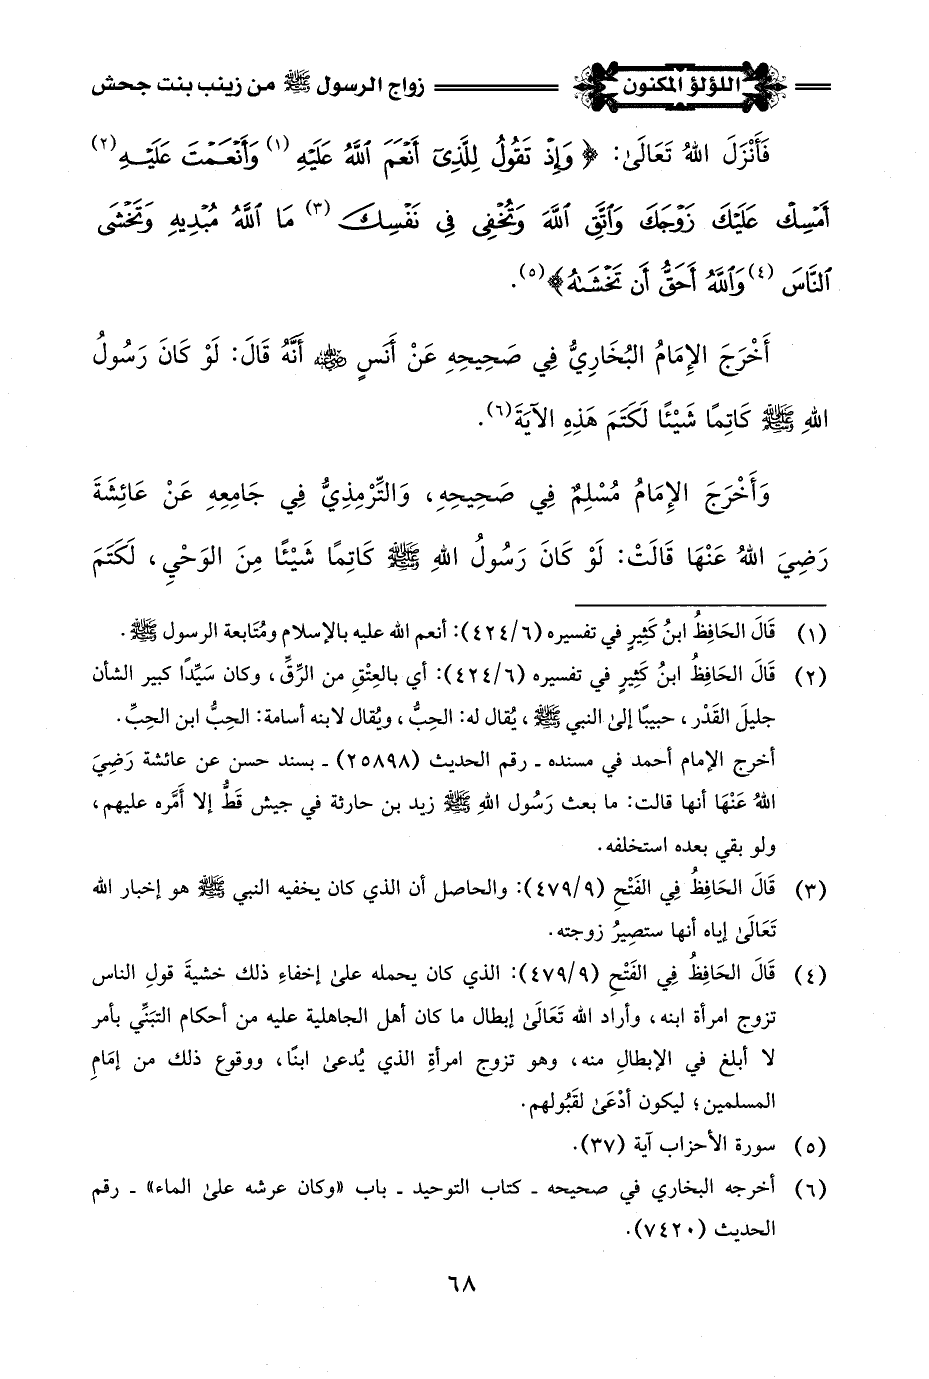 اللؤلؤ المكنون زواج الرسول ﷺ من زينب بنت جحش
فَأَنْزَلَ اللهُ تَعَالَىٰ: ﴿وَإِذْ تَقُولُ لِلَّذِىٓ أَنْعَمَ ٱللَّهُ عَلَيْهِ (١) وَأَنْعَمْتَ عَلَيْهِ (٢)
أَمْسِكْ عَلَيْكَ زَوْجَكَ وَٱتَّقِ ٱللَّهَ وَتُخْفِى فِى نَفْسِكَ (٣) مَا ٱللَّهُ مُبْدِيهِ وَتَخْشَى
ٱلنَّاسَ (٤) وَٱللَّهُ أَحَقُّ أَن تَخْشَىٰهُ﴾ (٥).
أَخْرَجَ الإِمَامُ البُخَارِيُّ فِي صَحِيحِهِ عَنْ أَنَسٍ رضي الله عنه أَنَّهُ قَالَ: لَوْ كَانَ رَسُولُ
اللهِ ﷺ كَاتِمًا شَيْئًا لَكَتَمَ هَذِهِ الآيَةَ (٦).
وَأَخْرَجَ الإِمَامُ مُسْلِمٌ فِي صَحِيحِهِ، وَالتِّرْمِذِيُّ فِي جَامِعِهِ عَنْ عَائِشَةَ
رَضِيَ اللهُ عَنْهَا قَالَتْ: لَوْ كَانَ رَسُولُ اللهِ ﷺ كَاتِمًا شَيْئًا مِنَ الوَحْيِ، لَكَتَمَ
(١) قَالَ الحَافِظُ ابنُ كَثِيرٍ في تفسيره (٤٢٤/٦): أنعم الله عليه بالإسلام ومُتَابعة الرسول ﷺ.
(٢) قَالَ الحَافِظُ ابنُ كَثِيرٍ في تفسيره (٤٢٤/٦): أي بالعِتْقِ من الرِّقِّ، وكان سَيِّدًا كبير الشأن
جليلَ القَدْر، حبيبًا إلىٰ النبي ﷺ، يُقال له: الحِبُّ، ويُقال لابنه أسامة: الحِبُّ ابن الحِبِّ.
أخرج الإمام أحمد في مسنده ـ رقم الحديث (٢٥٨٩٨) ـ بسند حسن عن عائشة رَضِيَ
اللهُ عَنْهَا أنها قالت: ما بعث رَسُول اللهِ ﷺ زيد بن حارثة في جيش قَطُّ إلا أَمَّره عليهم،
ولو بقي بعده استخلفه.
(٣) قَالَ الحَافِظُ فِي الفَتْحِ (٤٧٩/٩): والحاصل أن الذي كان يخفيه النبي ﷺ هو إخبار الله
تَعَالَىٰ إياه أنها ستصِيرُ زوجته.
(٤) قَالَ الحَافِظُ فِي الفَتْحِ (٤٧٩/٩): الذي كان يحمله علىٰ إخفاءِ ذلك خشيةَ قولِ الناس
تزوج امرأة ابنه، وأراد الله تَعَالَىٰ إبطال ما كان أهل الجاهلية عليه من أحكام التبَنِّي بأمر
لا أبلغ في الإبطالِ منه، وهو تزوج امرأةِ الذي يُدعىٰ ابنًا، ووقوع ذلك من إمَامِ
المسلمين؛ ليكون أدْعَىٰ لقَبُولهم.
(٥) سورة الأحزاب آية (٣٧).
(٦) أخرجه البخاري في صحيحه ـ كتاب التوحيد ـ باب «وكان عرشه علىٰ الماء» ـ رقم
الحديث (٧٤٢٠).
٦٨